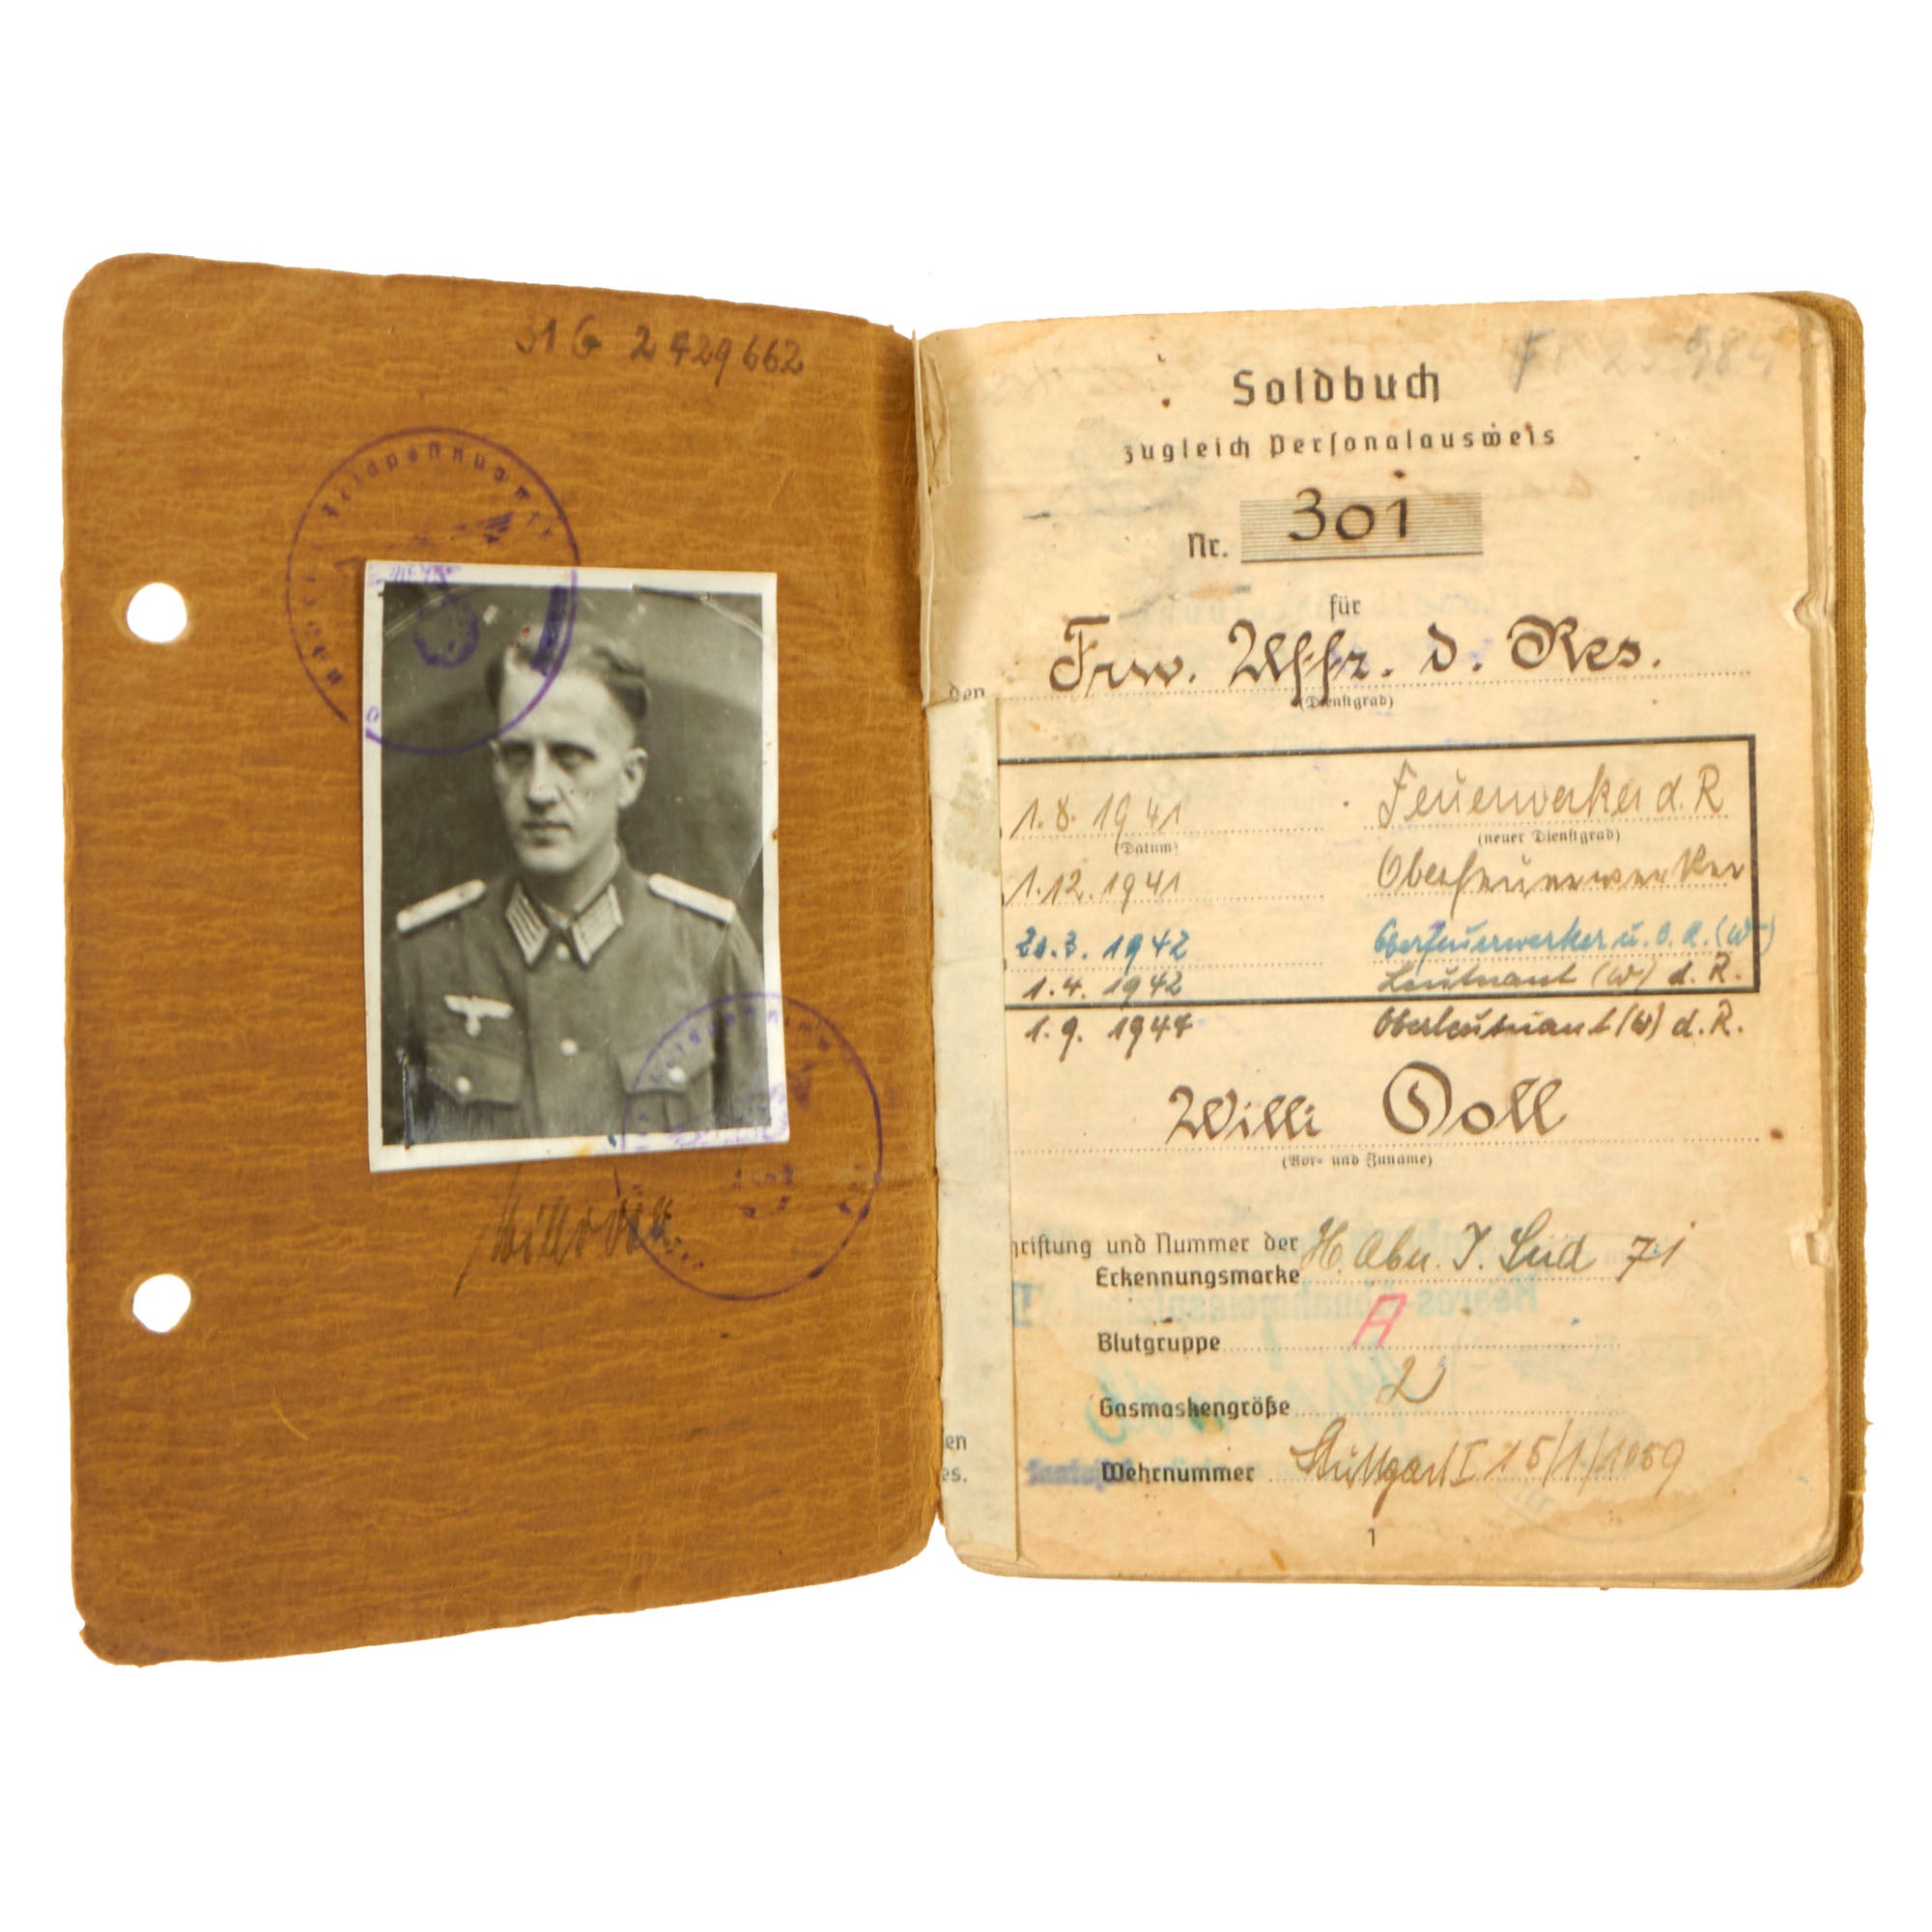 31 G 2429662
Willi Doll
Soldbuch
zugleich Personalausweis
Nr. 301
für
Frw. Uffz. d. Res.
den
(Dienstgrad)
1.8.1941 Feuerwerker d. R
(Datum) (neuer Dienstgrad)
1.12.1941 Oberfeuerwerker
20.3.1942 Oberfeuerwerker u. O. A. (W)
1.4.1942 Leutnant (W) d. R.
1.9.1944 Oberleutnant (W) d. R.
Willi Doll
(Vor- und Zuname)
hriftung und Nummer der
Erkennungsmarke H. Abn. J. Süd 71
Blutgruppe A
Gasmaskengröße 2
en
es. Wehrnummer Stuttgart I 15/1/1059
1